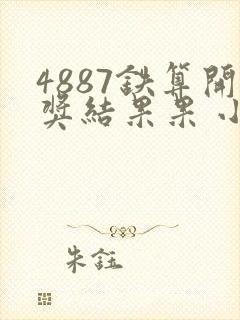 4887鉄算開
奖結果果小
朱鈺